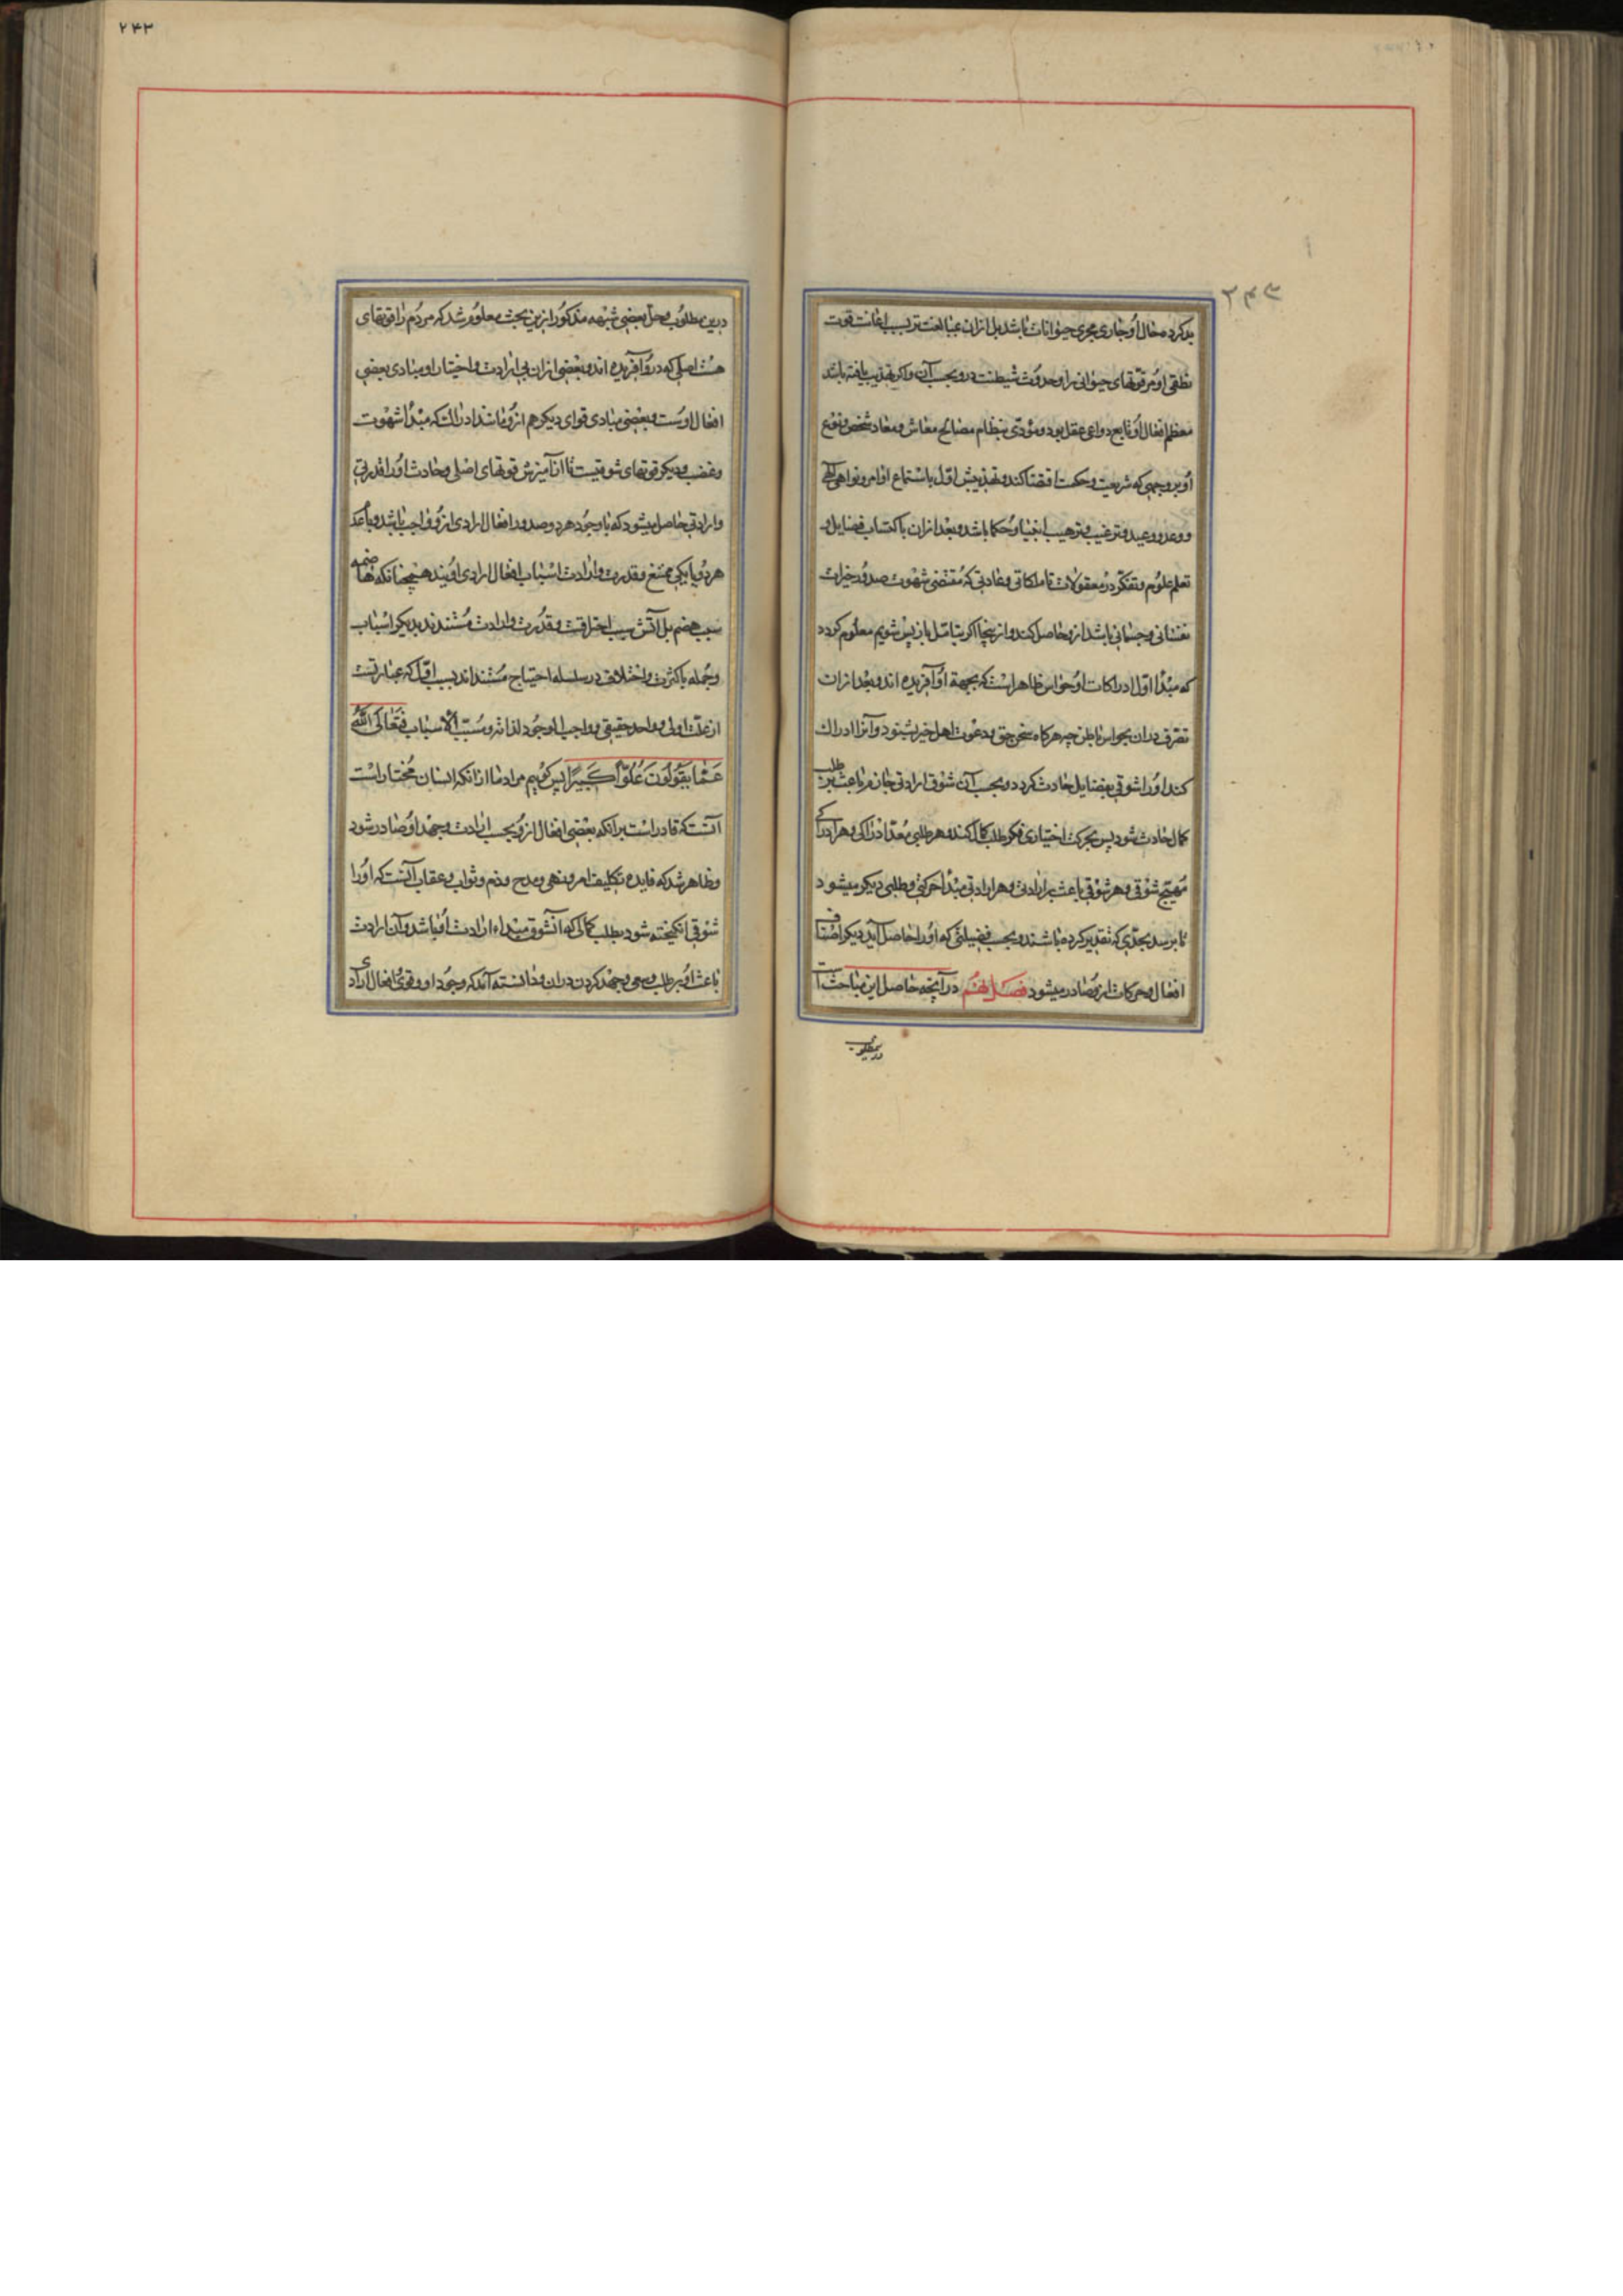 ۲۴۳
بد کرد و حال او جاری مجری حیوانات باشد بل ازان مبالغت تر بسبب اعانت قوت
نطقی او مر قوتهای حیوانی را و حدوث شیطنت درو بحسب آن و اکر تهذیب یافته باشد
معظم افعال او تابع دواعی عقل بود و مؤدی بنظام مصالح معاش و معاد شخص و نوع
او بر وجهی که شریعت و حکمت اقتضا کند و تهذیبش اول باستماع اوامر و نواهی الهی
و وعد و وعید و ترغیب و ترهیب انبیا و حکما باشد و بعد ازان باکتساب فضایل و
تعلم علوم و تفکر در معقولات تا ملکاتی و عادتی که مقتضی شهوت صدور خیرات
نفسانی و جسمانی باشد ازو حاصل کند و از ینجا اکر بتامل باز پس شویم معلوم کردد
که مبدا اول ادراکات او حواس ظاهر است که بجهة او آفریده اند و بعد ازان
تصرف دران بحواس باطن چه هرکاه سخن حق و دعوت اهل خیر بشنود و آنرا ادراک
کند او را شوقی بفضایل حادث کردد و بحسب آن شوق ارادتی جازم باعث بر طلب
کمال حادث شود پس بحرکت اختیاری فکر طلب کمال کند و هر طلبی معد ادراکی و هر ادراکی
مهیج شوقی و هر شوقی باعث بر ارادتی و هر ارادتی مبدا حرکتی و طلبی دیکر میشود
تا برسد بحدی که تقدیر کرده باشند و بحسب فضیلتی که او را حاصل آید دیکر اصناف
افعال و حرکات ازو صادر میشود فصل نهم در آنچه حاصل این مباحث است
درین مطلوب
درین مطلوب و حل بعضی شبهه مذکور ازین بحث معلوم شد که مردم را قوتهای
هست اصلی که درو آفریده اند و بعضی ازان بی ارادت و اختیار او مبادی بعضی
افعال اوست و بعضی مبادی قوای دیکر هم ازو مانند ادراک که مبدا شهوت
و غضب و دیکر قوتهای شوقیست تا از آمیزش قوتهای اصلی و حادث او را قدرتی
و ارادتی حاصل میشود که با وجود هر دو صدور افعال ارادی ازو واجب باشد و با عدم
هر دو یا یکی ممتنع و قدرت و ارادت اسباب افعال ارادی اویند همچنانکه هاضمه
سبب هضم بل آتش سبب احراقست و قدرت و ارادت مستندند بدیکر اسباب
و جمله با کثرت و اختلاف در سلسله احتیاج مستند اند بسبب اول که عبارتست
از علت اولی و واحد حقیقی و واجب الوجود لذاته و مسبب الاسباب فتعالی الله
عما یقولون علوا کبیرا پس کوییم مراد ما ازانکه انسان مختار است
آنست که قادر است برانکه بعضی افعال ازو بحسب ارادت و جهد او صادر شود
و ظاهر شد که فایده تکلیف امر و نهی و مدح و ذم و ثواب و عقاب آنست که او را
شوقی انکیخته شود بطلب کمالی که آنشوق مبداء ارادت او باشد و آن ارادت
باعث او بر طلب و سعی و جهد کردن دران و دانسته آمد که وجود او و قوی و افعال ارادی
۲۴۳